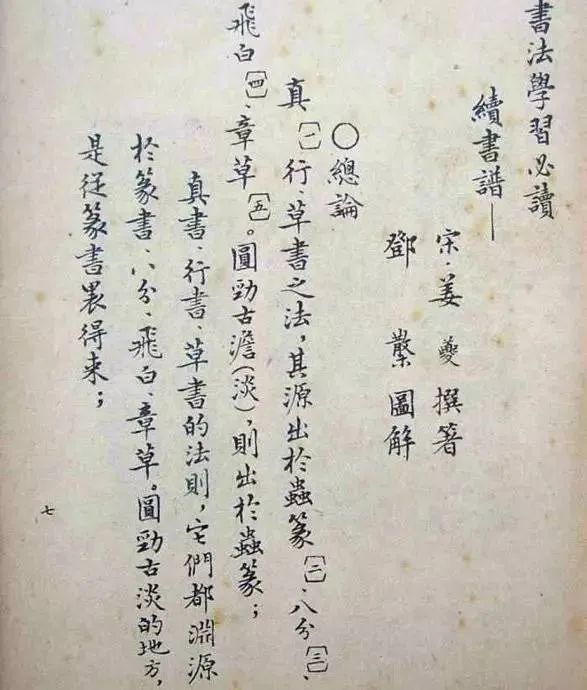 書法學習必讀
續書譜—
宋·姜夔撰著
鄧 繁圖解
〇總論
真〔一〕、行、草書之法，其源出於蟲篆〔二〕、八分〔三〕、
飛白〔四〕、章草〔五〕。圓勁古澹(淡)，則出於蟲篆；
真書、行書、草書的法則，它們都淵源
於篆書、八分、飛白、章草。圓勁古淡的地方，
是從篆書裏得來；
七